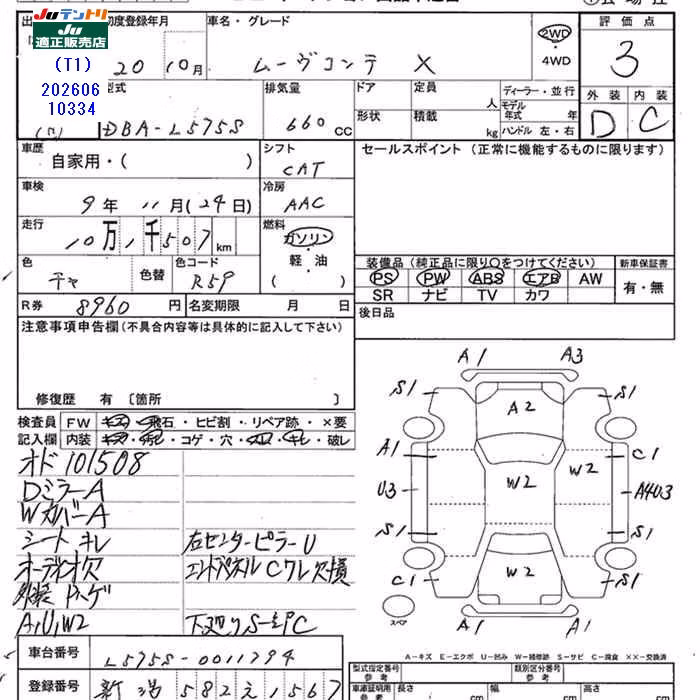 Juテントリ
Ju 適正販売店
(T1)
202606
10334
初度登録年月
20 10月
車名・グレード
ムーヴコンテ X
2WD
・
4WD
評価点
3
外装 内装
D C
型式
DBA-L575S
排気量
660 cc
ドア 定員 人
形状 積載 kg
ディーラー・並行
モデル年式 年
ハンドル 左・右
車歴
自家用・( )
シフト
CAT
セールスポイント(正常に機能するものに限ります)
車検
9年 11月(24日)
冷房
AAC
走行
10万1千507km
燃料
ガソリン
軽・油
( )
色 色替 色コード
R59
装備品(純正品に限り○をつけてください) 新車保証書
PS PW ABS エアB AW 有・無
SR ナビ TV カワ
R券 8960円 名変期限 月 日
後日品
注意事項申告欄(不具合内容等は具体的に記入して下さい)
修復歴 有 〔箇所 〕
検査員 FW キズ・飛石・ヒビ割・リペア跡・×要
記入欄 内装 ・コゲ・穴・ ・破し
オド 101508
DミラーA
WカバーA
シート キレ 右センターピラーU
オーディオ欠 エンドパネル Cワレ欠損
A,U,W2
A1 A3
S1 A2 S1
A1 W2 W2 C1
U3 A4U3
S1 S1
C1 W2 S1
スペア
A1 A1
A-キズ E-エクボ U-凹み W-補修跡 S-サビ C-腐食 ××-交換済
車台番号 L575S-0011794
型式指定番号 参考 類別区分番号 参考
登録番号 新潟 582 え 1567
車庫証明用 参考 長さ cm 幅 cm 高さ cm